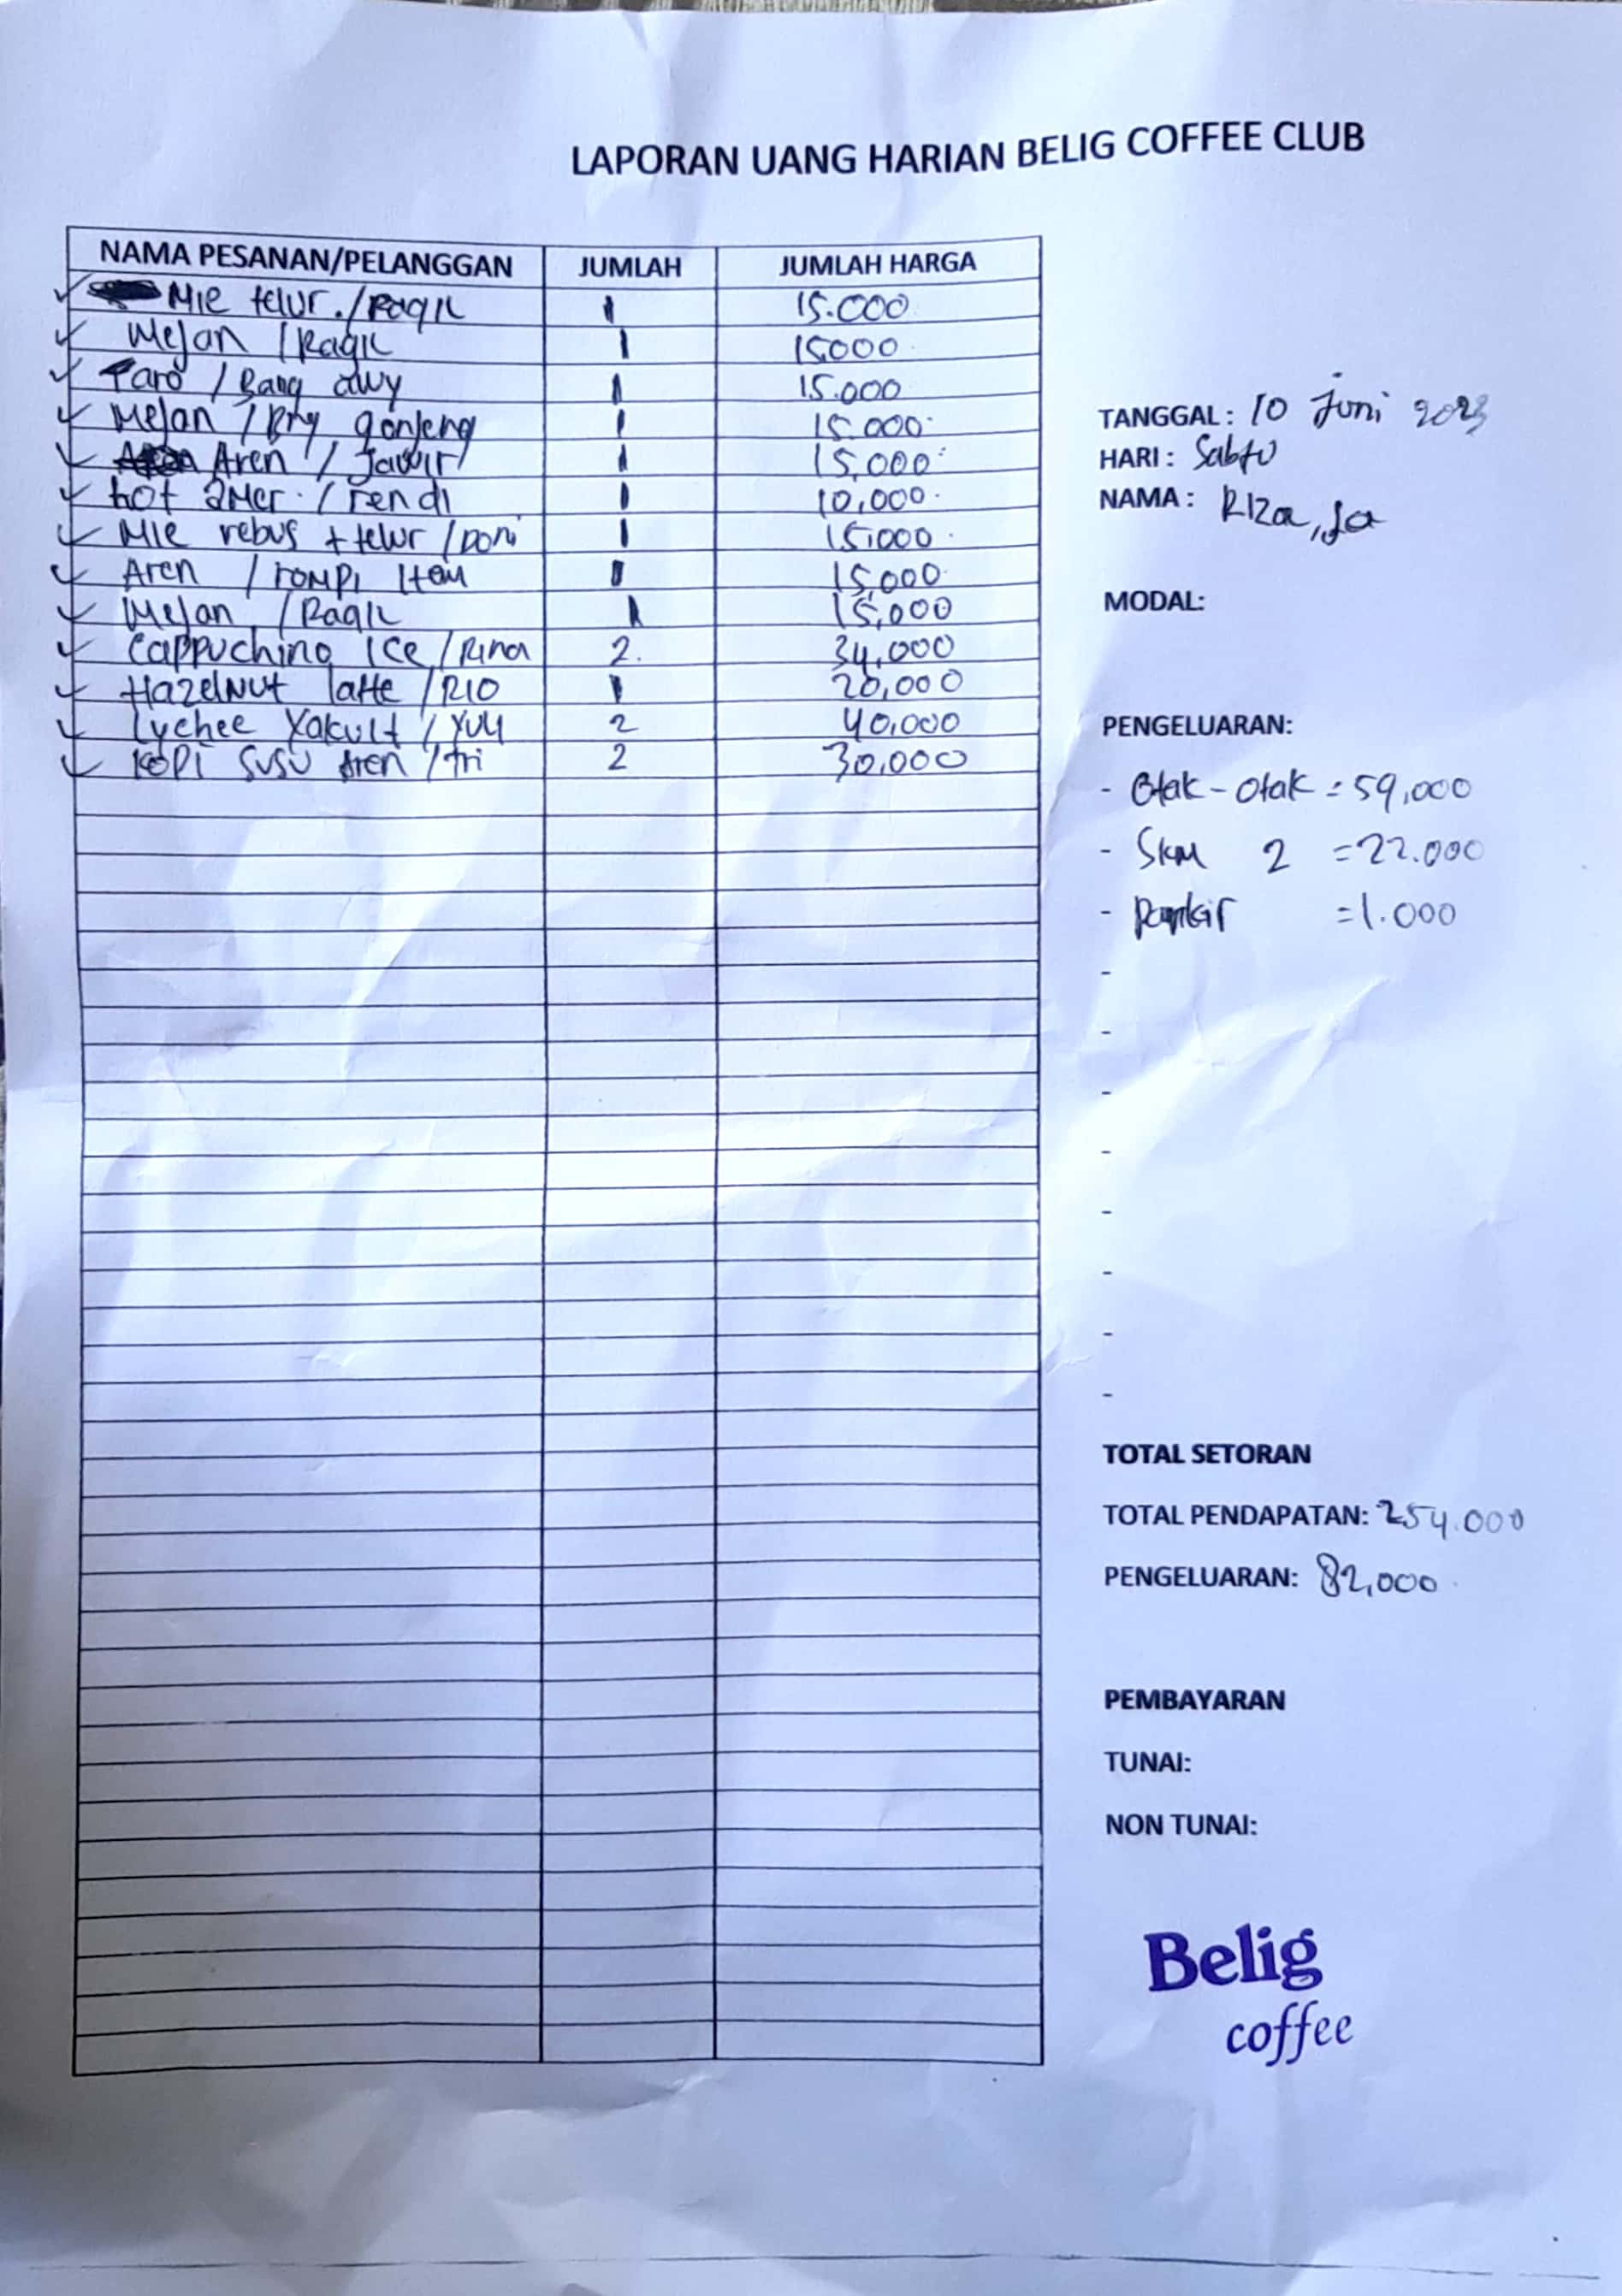 LAPORAN UANG HARIAN BELIG COFFEE CLUB
NAMA PESANAN/PELANGGAN JUMLAH JUMLAH HARGA
Mie telur./Ragil 1 15.000
Mejan /Ragil 1 15000
Taro / Bang awy 1 15.000
Mejan / Bng gonjeng 1 15.000
Aren / Jawir 1 15,000
hot amer. / rendi 1 10,000
Mie rebus + telur / Doni 1 15,000
Aren / rompi Item 1 15,000
Mejan / Ragil 1 15,000
Cappuchino Ice / Rina 2. 34,000
Hazelnut latte / RIO 1 20,000
Lychee Yakult / Yuli 2 40,000
Kopi Susu Aren / Tri 2 30,000
TANGGAL: 10 Juni 2023
HARI: Sabtu
NAMA: RIza,
MODAL:
PENGELUARAN:
- Otak-otak = 59,000
- Skm 2 = 22.000
- Parkir = 1.000
-
-
-
-
-
-
-
-
TOTAL SETORAN
TOTAL PENDAPATAN: 254.000
PENGELUARAN: 82,000
PEMBAYARAN
TUNAI:
NON TUNAI:
Belig
coffee